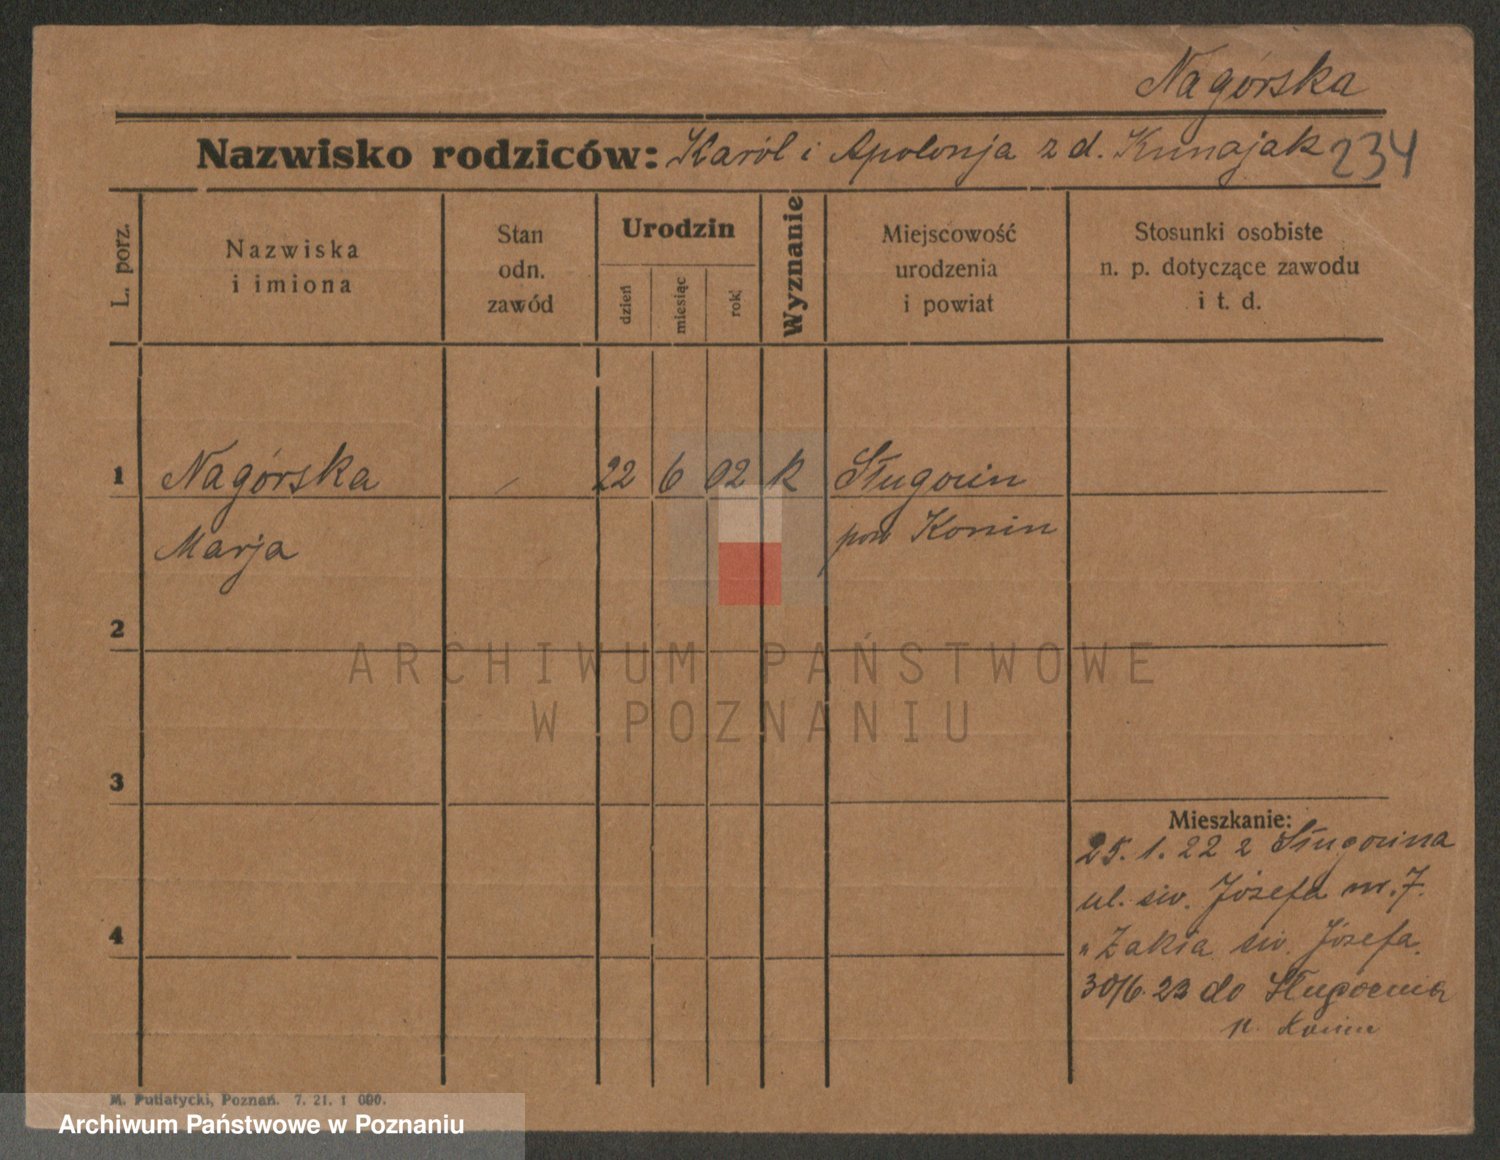 Nagórska
Nazwisko rodziców: Karól i Apolonja z d. Kunajak 234
L. porz.
Nazwiska
i imiona
Stan
odn.
zawód
Urodzin
dzień
miesiąc
rok
Wyznanie
Miejscowość
urodzenia
i powiat
Stosunki osobiste
n. p. dotyczące zawodu
i t. d.
1 Nagórska 22 6 02 k Sługocin
Marja pow Konin
2
3
4
ARCHIWUM PAŃSTWOWE
W POZNANIU
Mieszkanie:
25. 1. 22 z Sługocina
ul. św. Józefa nr. 7.
" Zakła św. Józefa.
30/6. 23 do
p. Konin
M. Putiatycki, Poznań. 7. 21. 1 000.
Archiwum Państwowe w Poznaniu